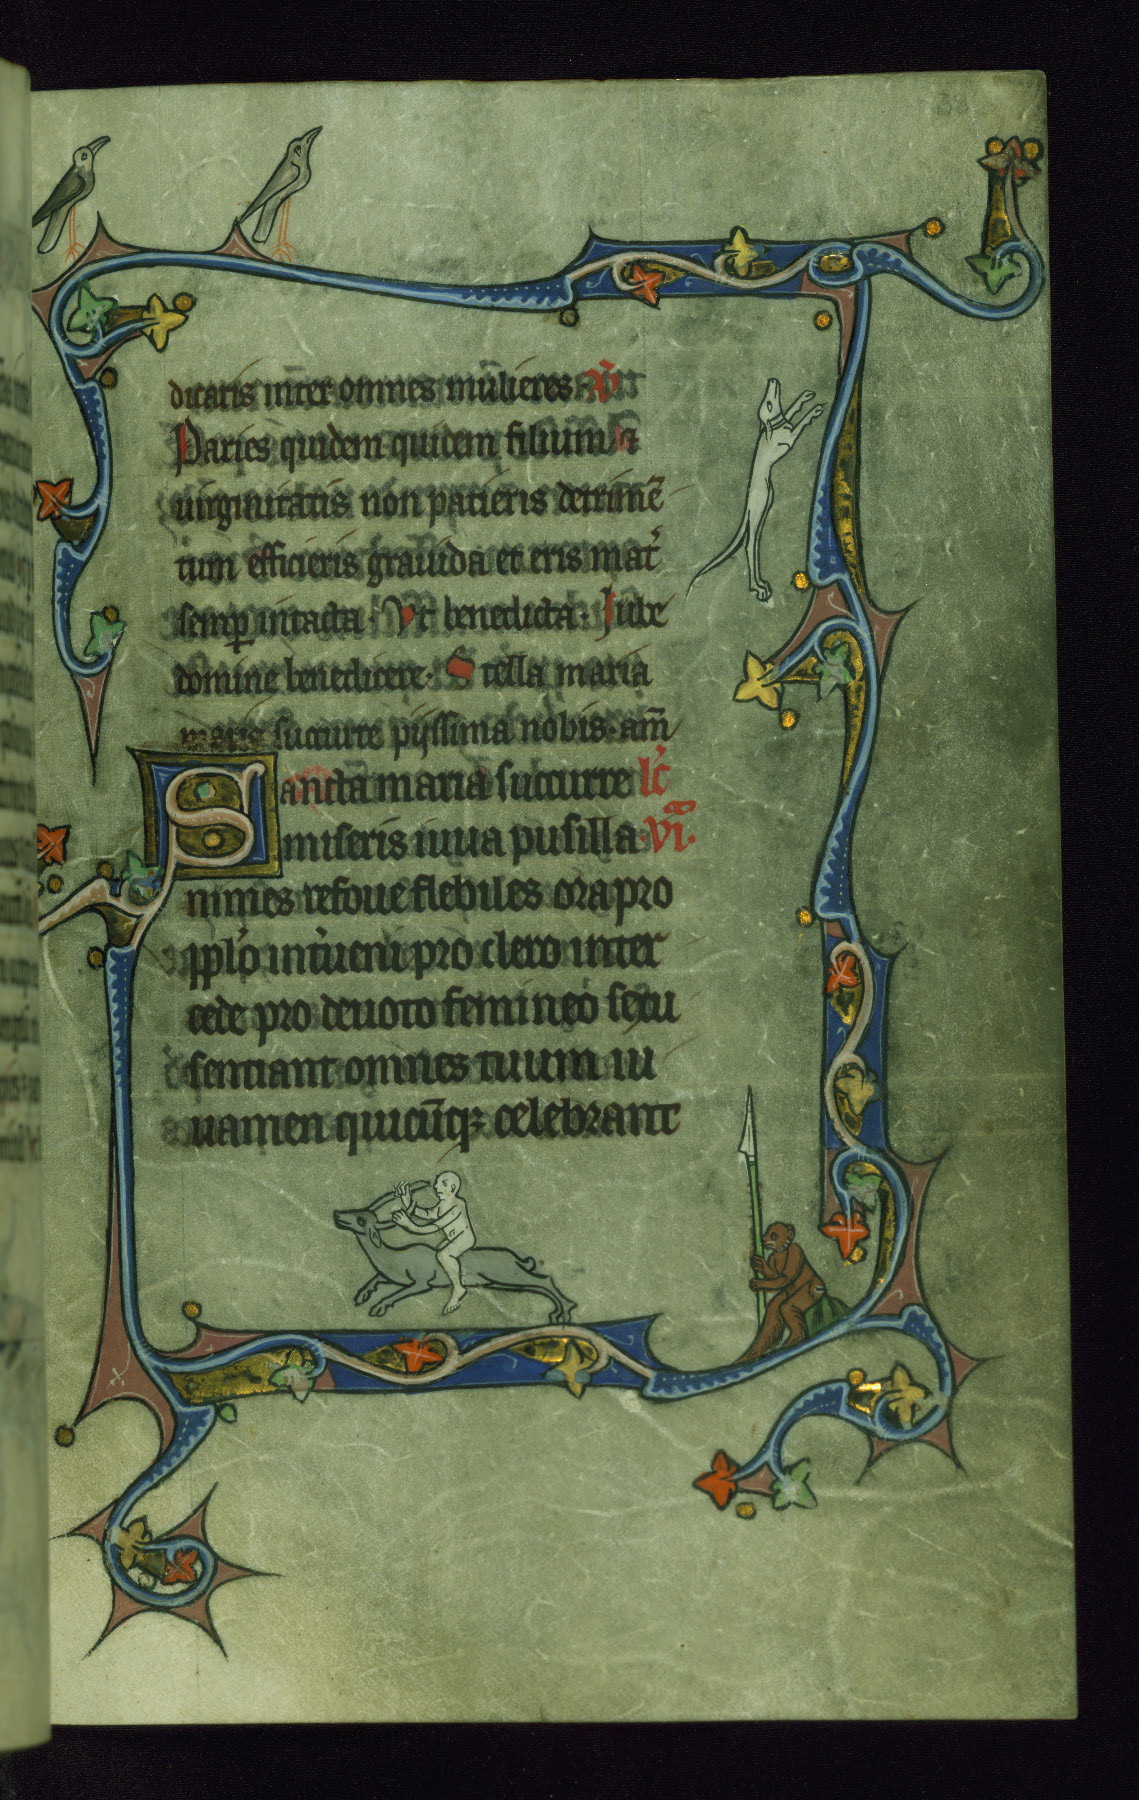 dicaris int̄er omnes mulieres ꝟ
Paries quidem quidem filium ⁊
uirginitatis non patieris detrimē
tum efficieris grauida et eris mat̉
semꝑ intacta. Vt benedicta. Jube
domine benedicere. Stella maria
maris succurre pijssima nobis. am̄
Sancta maria succurre lc̉
miseris iuua pusilla. vi.
nimes refoue flebiles ora pro
pplo int̉ueni pro clero inter
cede pro deuoto femineo sexu
sentiant omnes tuum iu
uamen quicūqꝫ celebrant